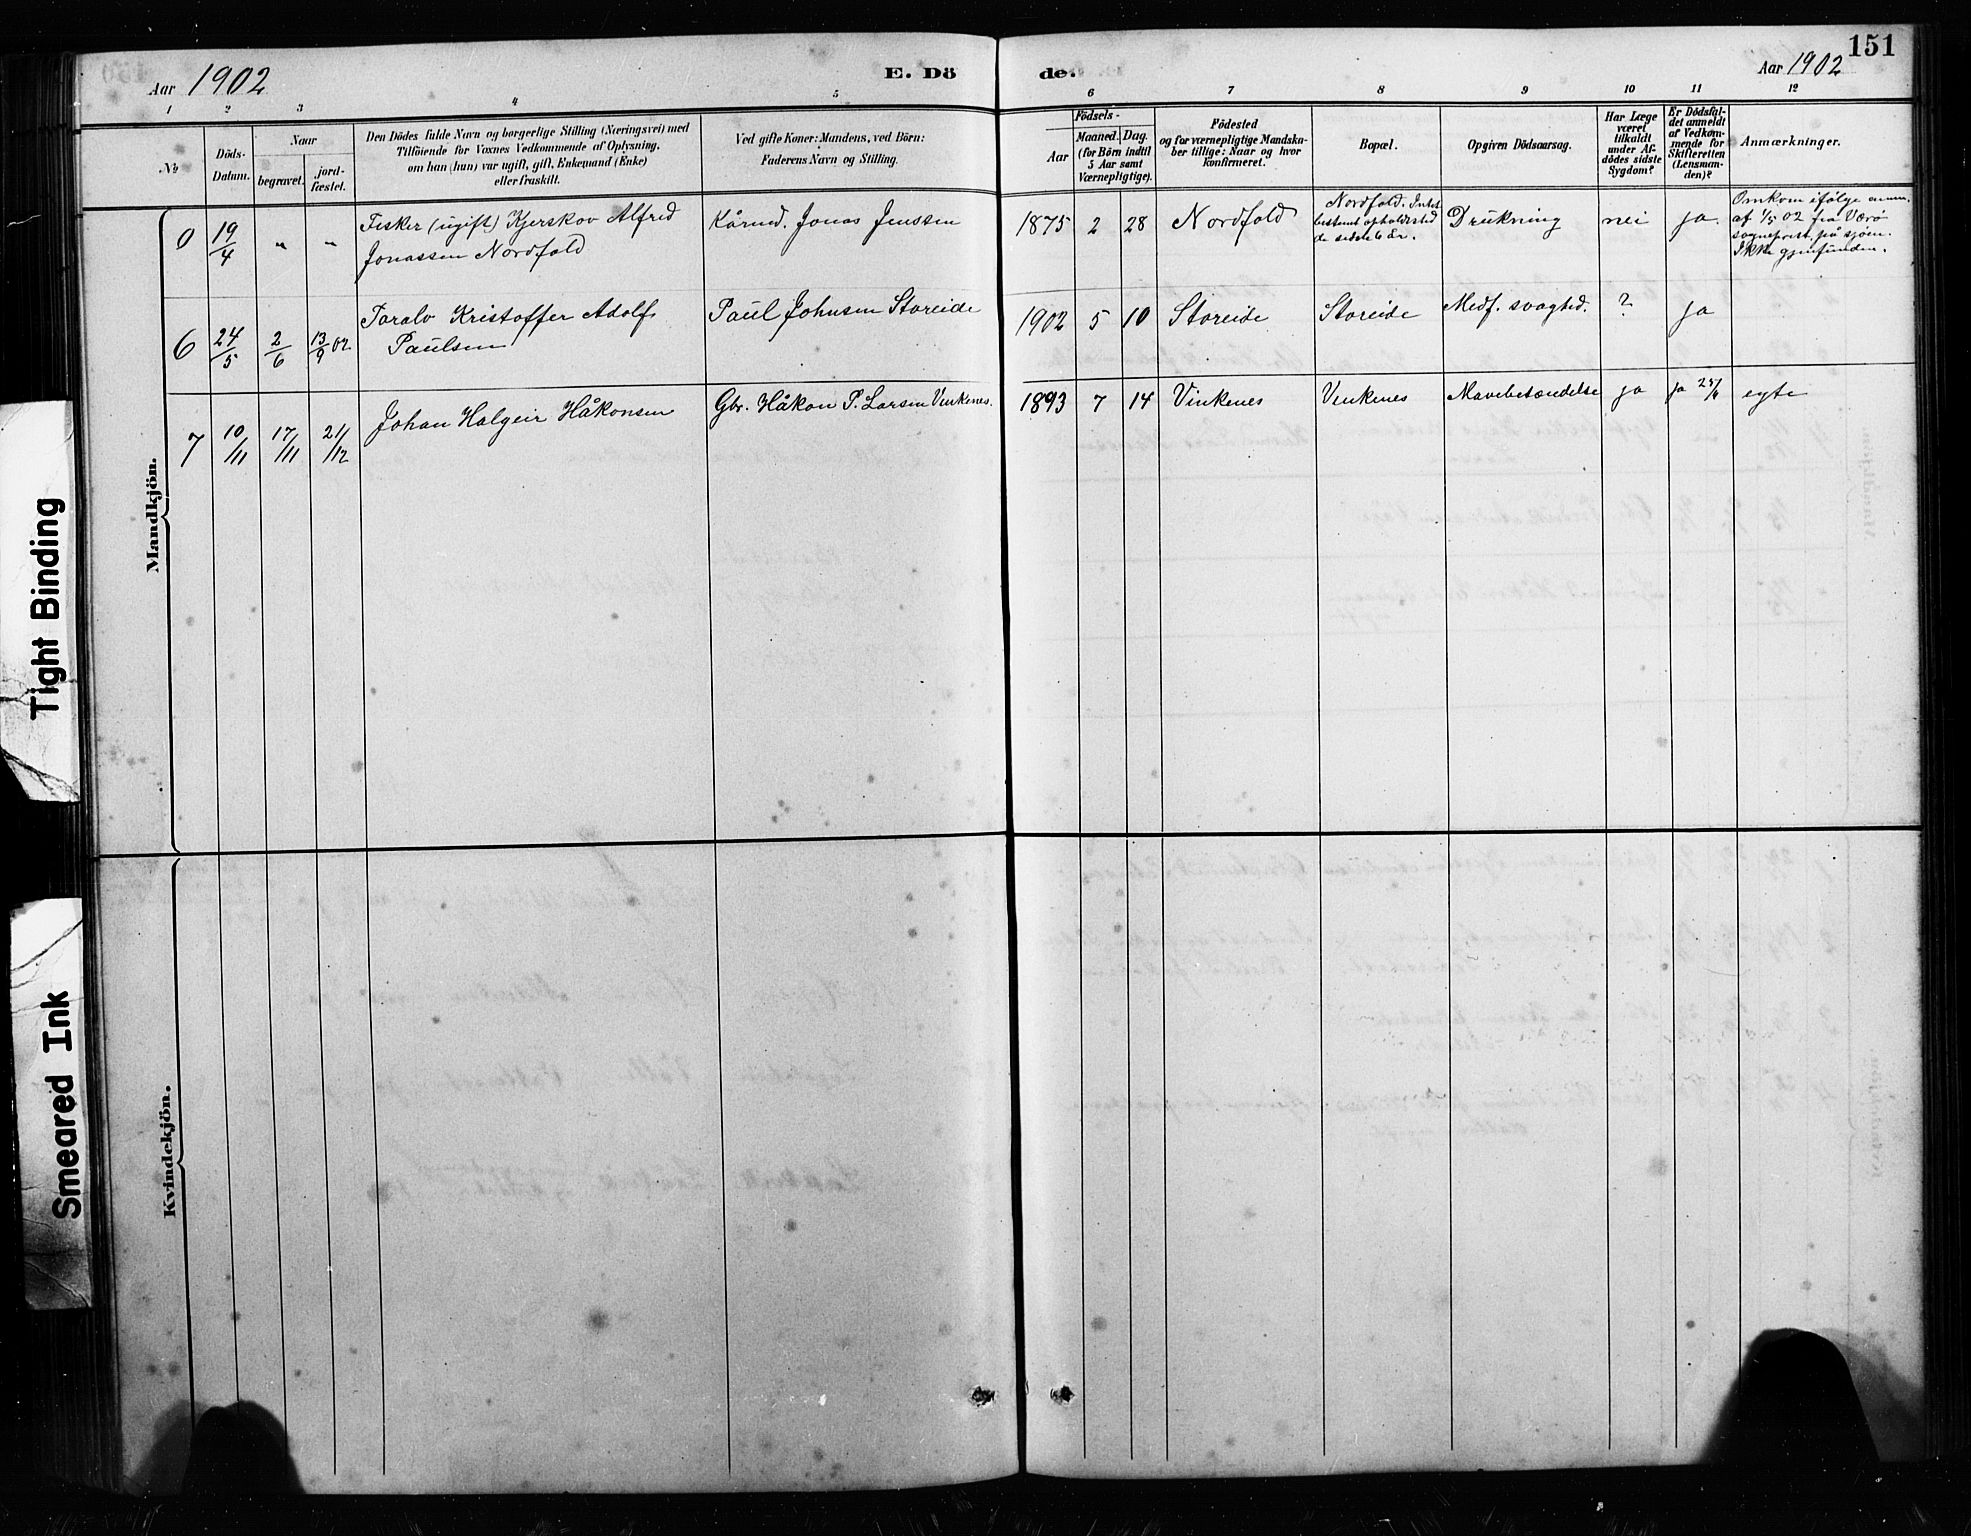 151
Aar 1902
E. Dö
de.
Aar 1902
1 2 3 4 5 6 7 8 9 10 11 12
No
Döds-
Datum.
Naar
begravet.
jord-
fæstet.
Den Dödes fulde Navn og borgerlige Stilling (Næringsvei) med
Tilföiende for Voxnes Vedkommende af Oplysning,
om han (hun) var ugift, gift, Enkemand (Enke)
eller fraskilt.
Ved gifte Koner: Mandens, ved Börn:
Faderens Navn og Stilling.
Födsels-
Aar
Maaned.
Dag.
(for Börn indtil
5 Aar samt
Værnepligtige).
Födested
og for værnepligtige Mandska-
ber tillige: Naar og hvor
konfirmeret.
Bopæl.
Opgiven Dödsaarsag.
Har Læge
været
tilkaldt
under Af-
dödes sidste
Sygdom?
Er Dödsfal-
det anmeldt
af Vedkom-
mende for
Skifteretten
(Lensman-
den)?
Anmærkninger.
Mandkjön.
0 19/4 " " Fisker (ugift) Kjerskov Alfred
Jonassen Nordfold
Kårmd. Jonas Jenssen
1875 2 28 Nordfold
Nordfold. Intet
bestemt opholdssted
de sidste 6 år.
Drukning nei ja.
Omkom ifølge anm.
af 1/5 02 fra Værø
sogneprest på sjøen.
Ikke gjenfunden.
6 24/5 2/6 13/9 02 Toralv Kristoffer Adolf
Paulsen
Paul Johnsen Storeide
1902 5 10 Storeide Storeide Medf. svaghed. ? ja
7 10/11 17/11 21/12 Johan Halgeir Håkonsen
Gbr. Håkon P. Larsen Vinkenes.
1893 7 14 Vinkenes Vinkenes Mavebetændelse ja ja egte
Kvindekjön.
Tight Binding
Smeared Ink